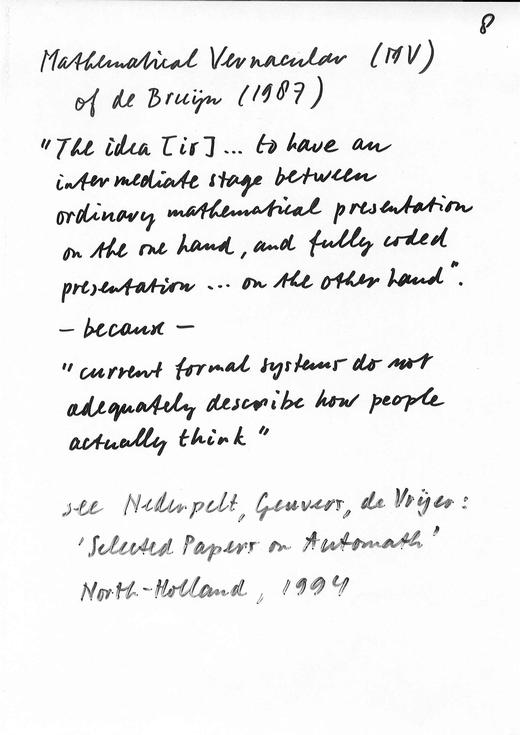 8
Mathematical Vernacular (MV)
of de Bruijn (1987)
"The idea [is] ... to have an
intermediate stage between
ordinary mathematical presentation
on the one hand, and fully coded
presentation ... on the other hand".
– because –
"current formal systems do not
adequately describe how people
actually think"
see Nederpelt, Geuvers, de Vrijer:
'Selected Papers on Automath'
North-Holland, 1994